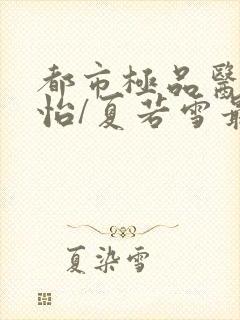 都市極品醫
怡/夏若雪最
夏染雪